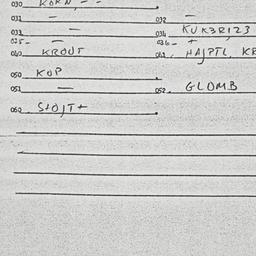 030 KORN, - -
031 - 032 -
033 - 034 KUKSRIZ3
035 - 036 -
040 KROUT 041. HAJPTL, KR
050 KOP
051 - 052. GLOMB
060 STOJT+